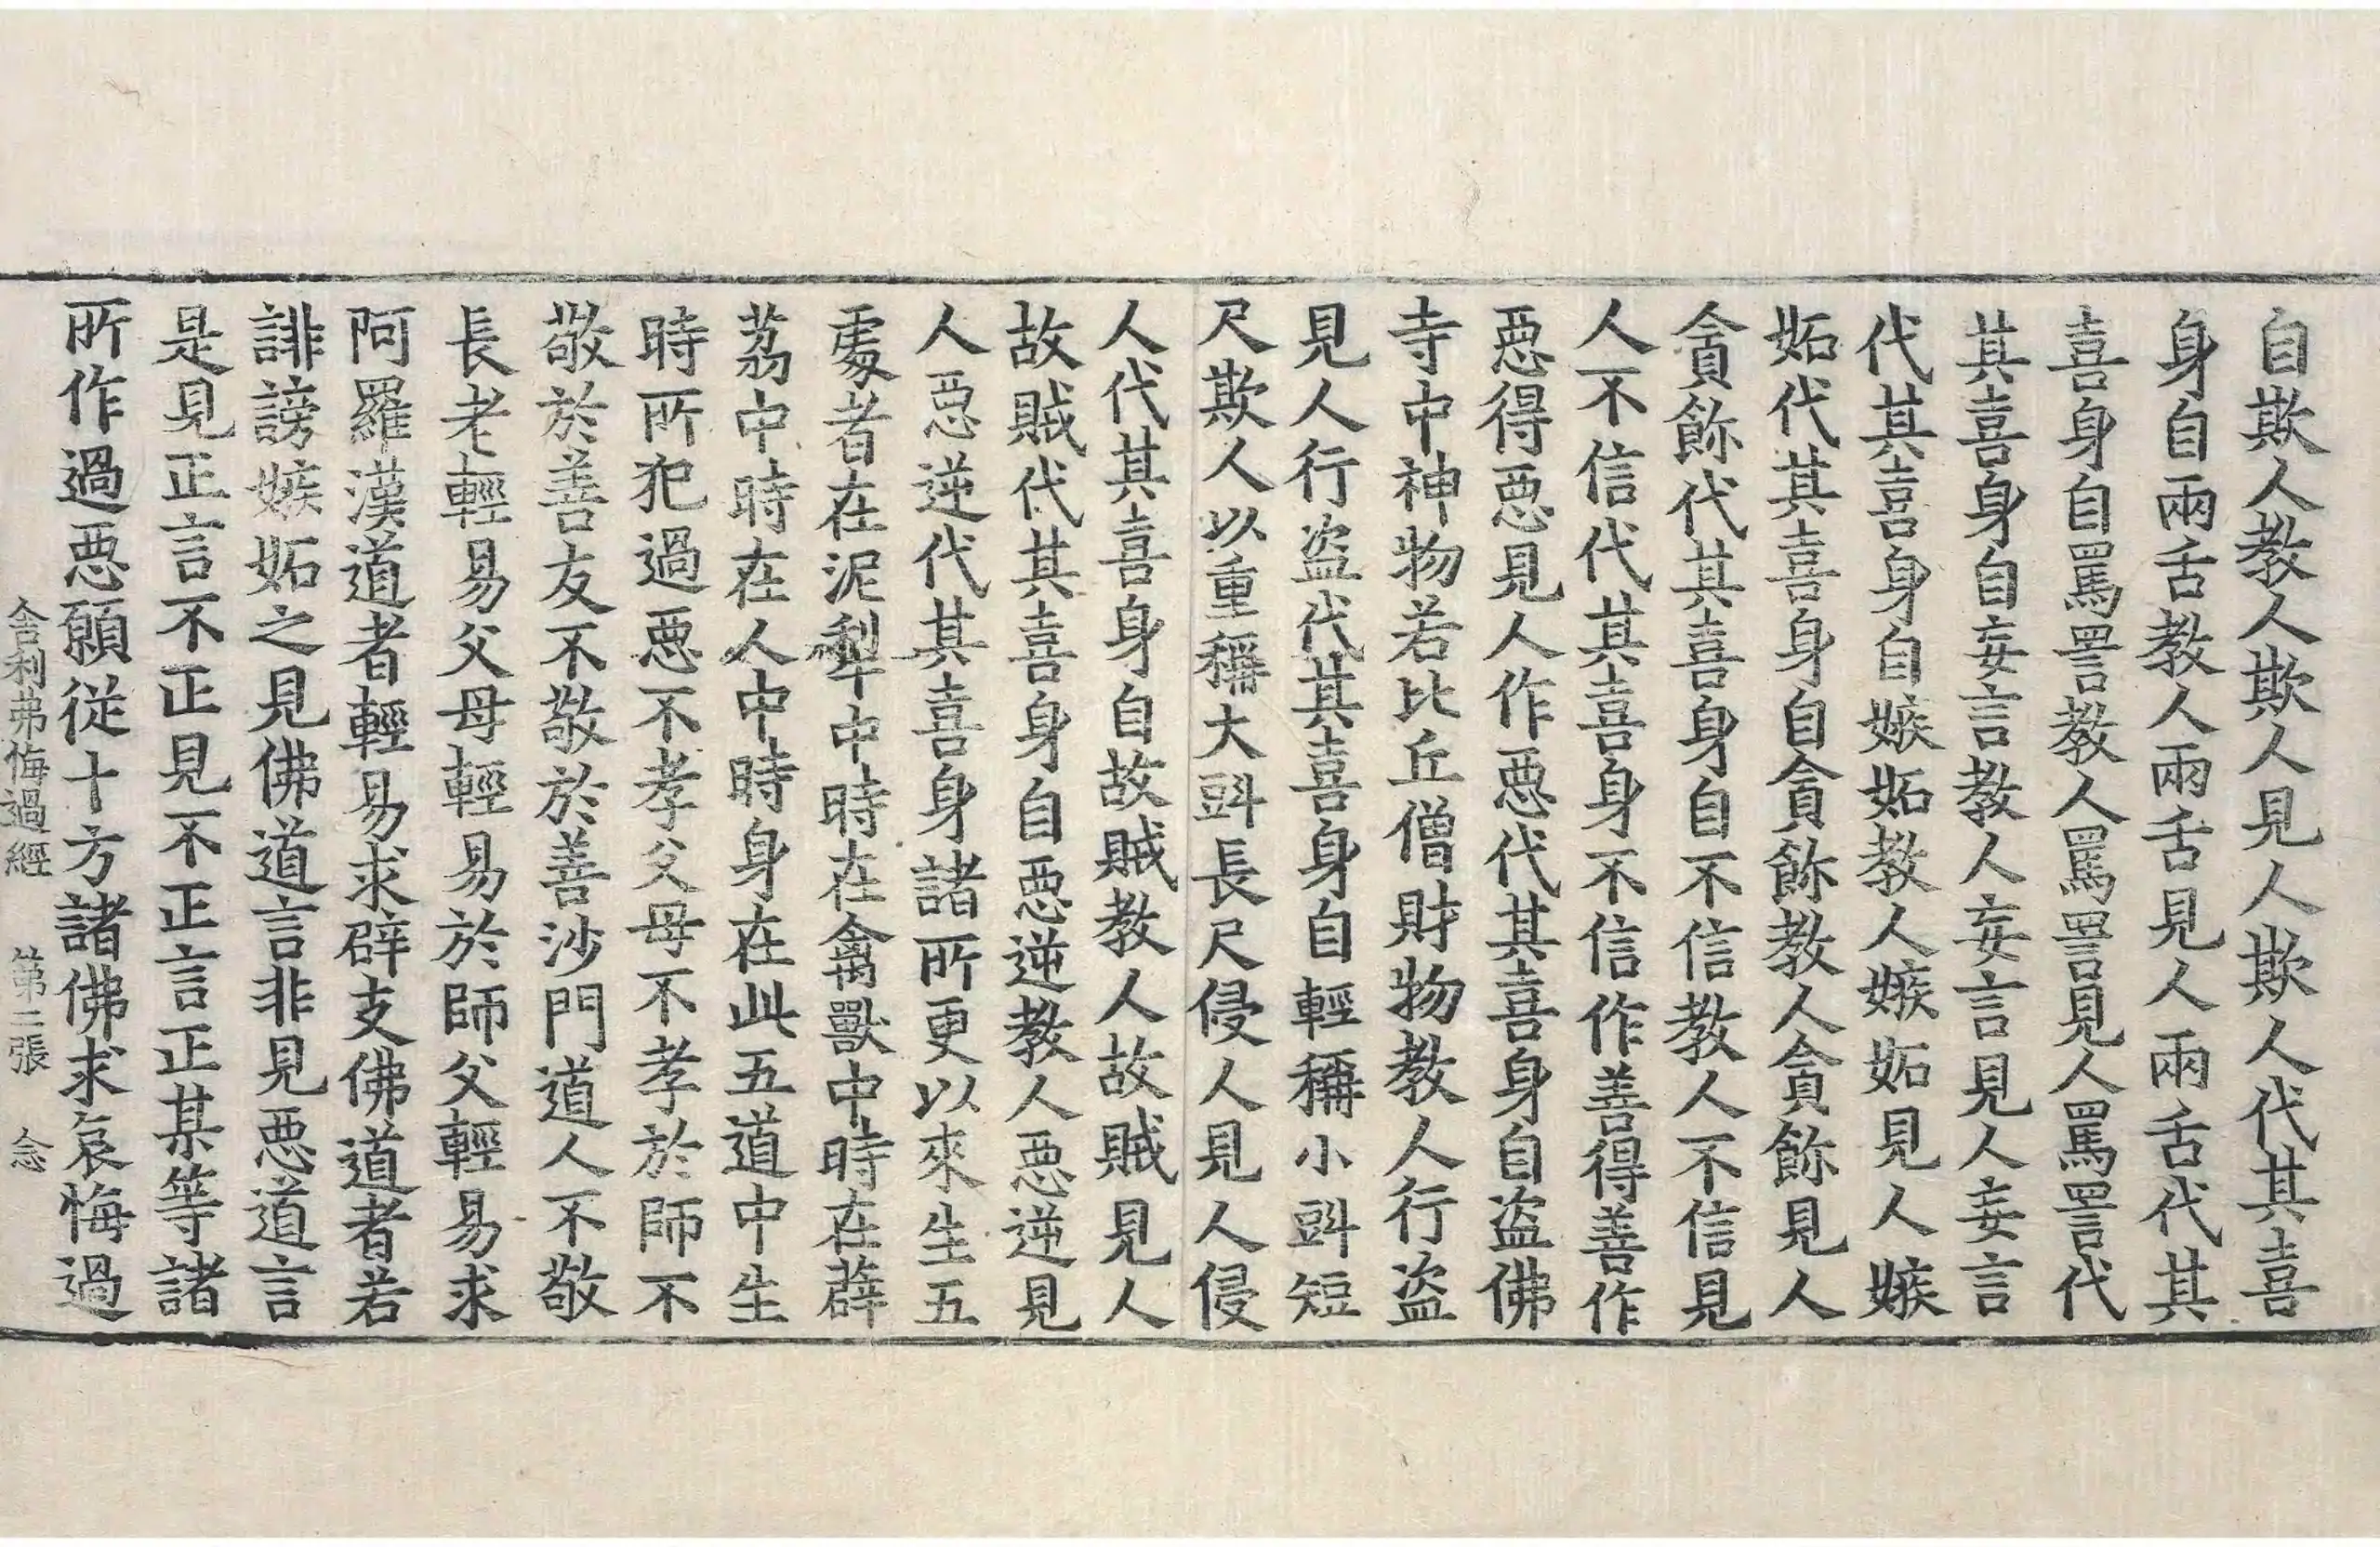 自欺人教人欺人見人欺人代其喜
身自兩舌教人兩舌見人兩舌代其
喜身自罵詈教人罵詈見人罵詈代
其喜身自妄言教人妄言見人妄言
代其喜身自嫉妬教人嫉妬見人嫉
妬代其喜身自貪餘教人貪餘見人
貪餘代其喜身自不信教人不信見
人不信代其喜身不信作善得善作
惡得惡見人作惡代其喜身自盜佛
寺中神物若比丘僧財物教人行盜
見人行盜代其喜身自輕稱小㪷短
尺欺人以重稱大㪷長尺侵人見人侵
人代其喜身自故賊教人故賊見人
故賊代其喜身自惡逆教人惡逆見
人惡逆代其喜身諸所更以來生五
處者在泥犁中時在禽獸中時在薜
荔中時在人中時身在此五道中生
時所犯過惡不孝父母不孝於師不
敬於善友不敬於善沙門道人不敬
長老輕易父母輕易於師父輕易求
阿羅漢道者輕易求辟支佛道者若
誹謗嫉妬之見佛道言非見惡道言
是見正言不正見不正言正某等諸
所作過惡願從十方諸佛求哀悔過
舍利弗悔過經 第二張 念